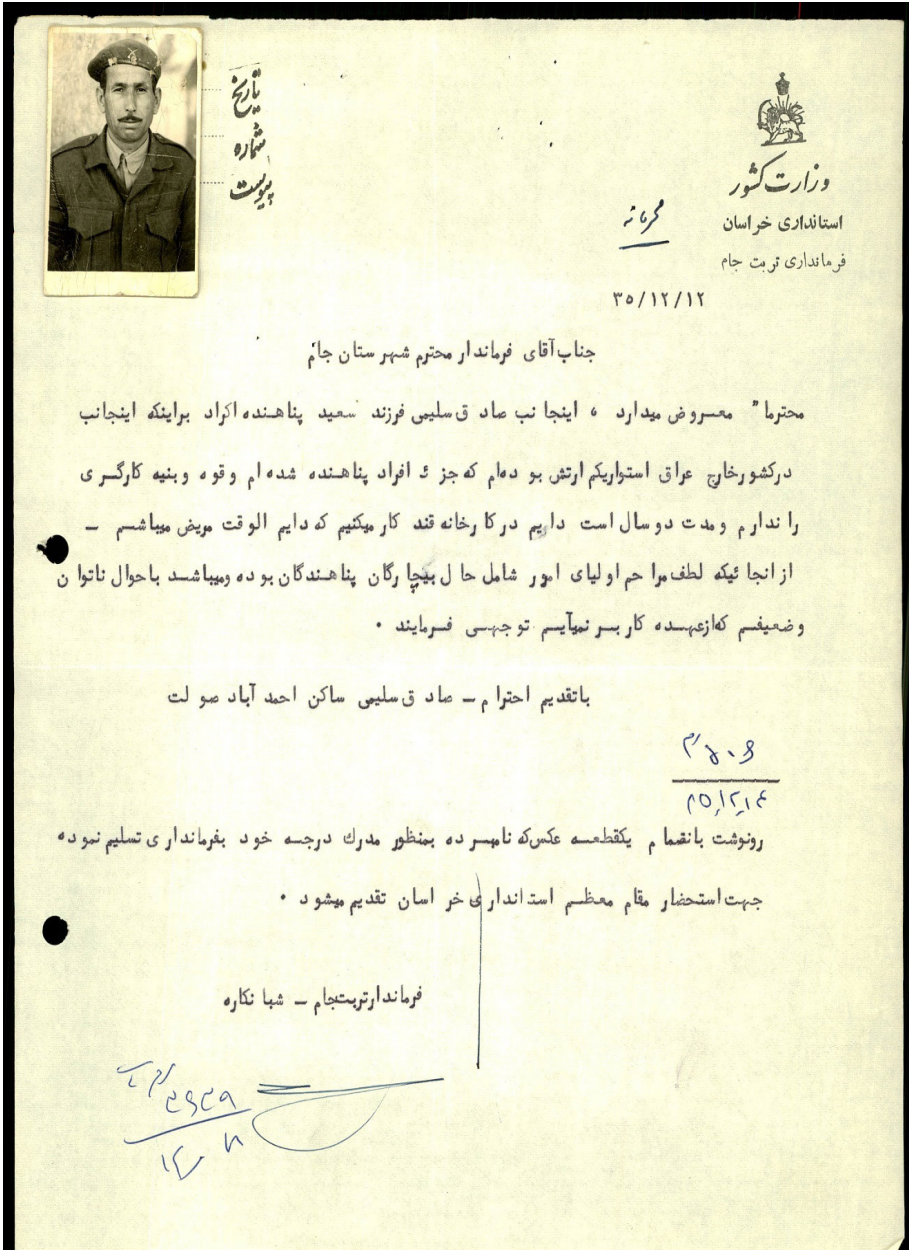 تاریخ
شماره
پیوست
وزارت کشور
استانداری خراسان
فرمانداری تربت جام
محرمانه
۳۵/۱۲/۱۲
جناب آقای فرماندار محترم شهرستان جام
محترما" معروض میدارد ، اینجانب صادق سلیمی فرزند سعید پناهنده اکراد براینکه اینجانب
درکشورخارج عراق استواریکم ارتش بوده‌ام که جزء افراد پناهنده شده‌ام وقوه وبنیه کارگری
را ندارم ومدت دوسال است داریم درکارخانه قند کار میکنیم که دایم الوقت مریض میباشم –
از انجائیکه لطف مراحم اولیای امور شامل حال بیچارگان پناهندگان بوده ومیباشد باحوال ناتوان
وضعیفم که ازعهده کار بر نمیآیم توجهی فرمایند .
باتقدیم احترام – صادق سلیمی ساکن احمد آباد صولت
رونوشت بانضمام یکقطعه عکس که نامبرده بمنظور مدرك درجه خود بفرمانداری تسلیم نموده
جهت استحضار مقام معظم استانداری خراسان تقدیم میشود .
فرماندار تربت‌جام – شبانکاره